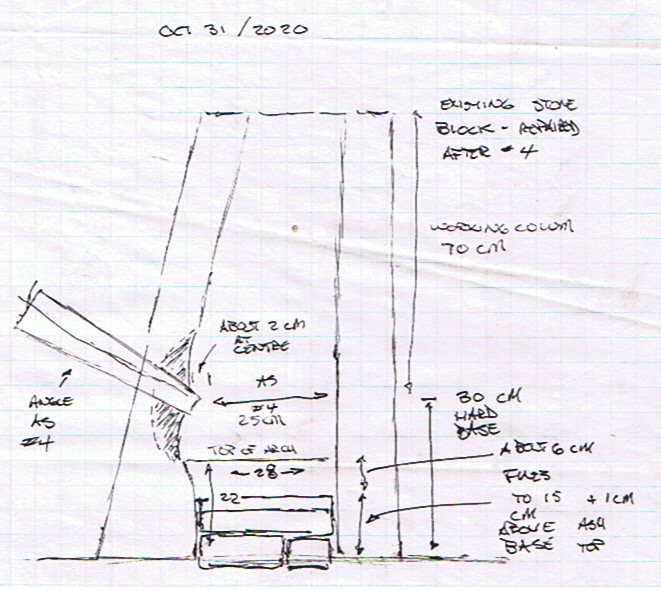 OCT 31 / 2020
EXISTING STONE
BLOCK - REPAIRED
AFTER #4
WORKING COLUM
70 CM
ABOUT 2 CM
AT
CENTRE
ANGLE
AS
#4
AS
#4
25 CM
30 CM
HARD
BASE
TOP OF ARCH
28
22
ABOUT 6 CM
TO 15 + 1 CM
CM
ABOVE ASH
BASE TOP